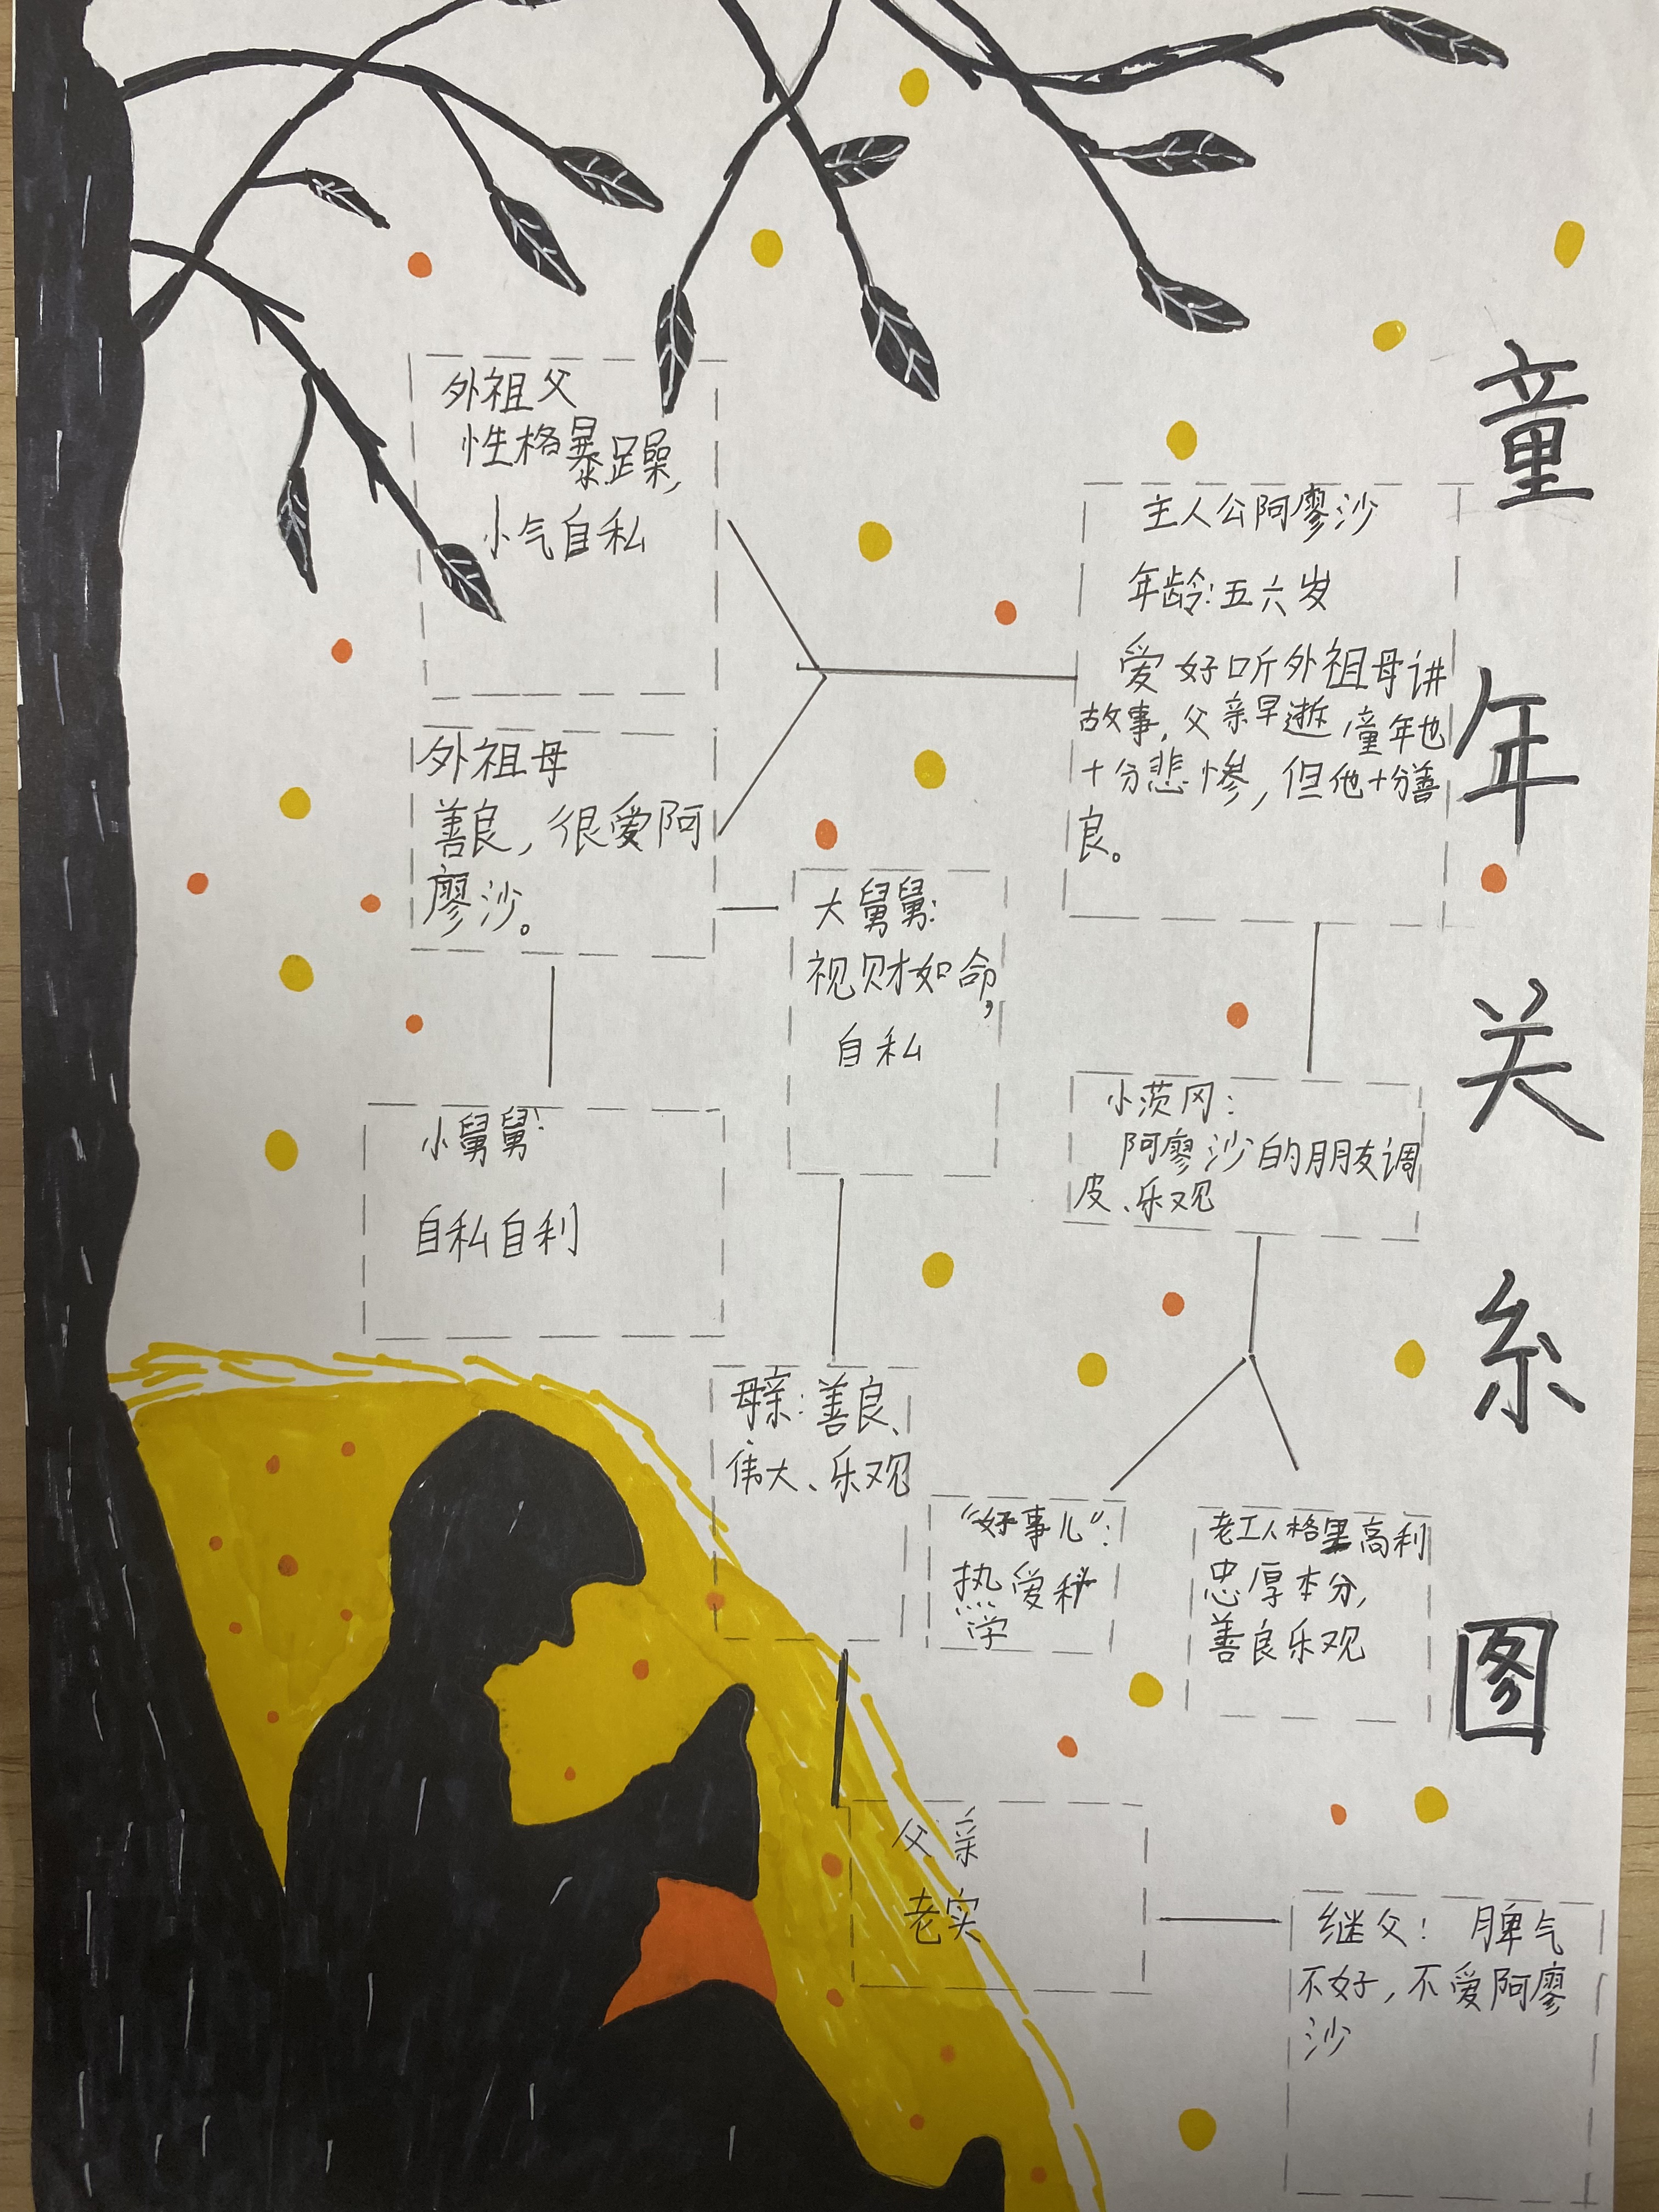 童年关系图
外祖父
性格暴躁,
小气自私
主人公阿廖沙
年龄:五六岁
爱好听外祖母讲
故事,父亲早逝,童年也
十分悲惨,但他十分善
良。
外祖母
善良,很爱阿
廖沙。
大舅舅:
视财如命,
自私
小舅舅:
自私自利
小茨冈:
阿廖沙的朋友调
皮、乐观
母亲:善良、
伟大、乐观
“好事儿”:
热爱科
学
老工人格里高利
忠厚本分,
善良乐观
父亲
老实
继父: 脾气
不好,不爱阿廖
沙